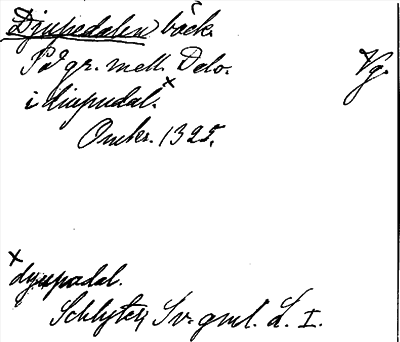 Djupedalen bäck.
På gr. mell. Delo. Vg.
i diupudal. x
Omkr. 1325.
x dyupadal.
Schlyter, Sv. gml. L. I.